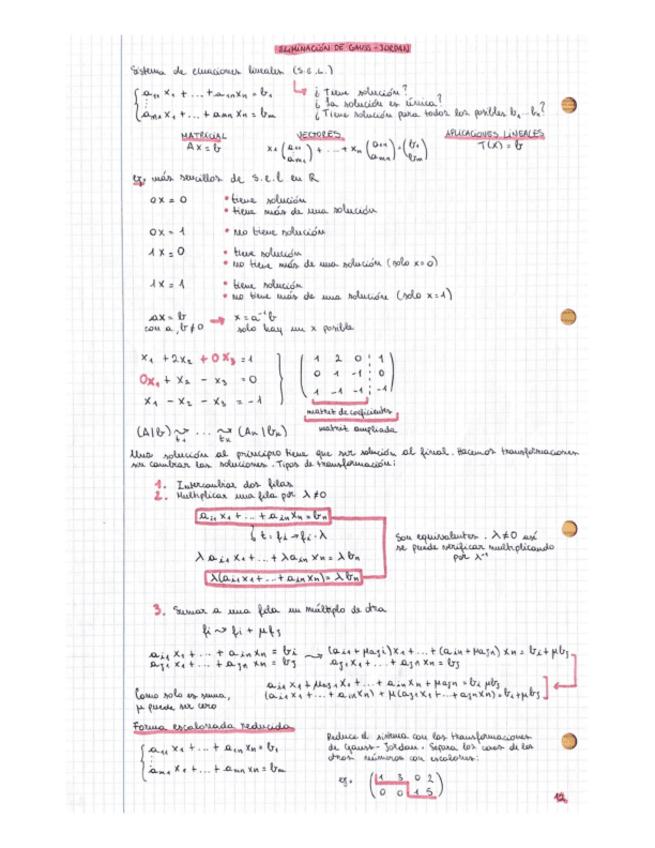 ELIMINACIÓN DE GAUSS-JORDAN
Sistema de ecuaciones lineales (S.E.L.)
a₁₁x₁ + ... + a₁ₙxₙ = b₁
⋮
aₘ₁x₁ + ... + aₘₙxₙ = bₘ
¿Tiene solución?
¿La solución es única?
¿Tiene solución para todos los posibles b₁...bₙ?
MATRICIAL VECTORES APLICACIONES LINEALES
Ax = b x₁(a₁₁ aₘ₁) + ... + xₙ(a₁ₙ aₘₙ) = (b₁ bₘ) T(x) = b
eg. más sencillos de s.e.l en R
0x = 0 • tiene solución
• tiene más de una solución
0x = 1 • no tiene solución
1x = 0 • tiene solución
• no tiene más de una solución (solo x=0)
1x = 1 • tiene solución
• no tiene más de una solución (solo x=1)
ax = b → x = a⁻¹b
con a, b ≠ 0 solo hay un x posible
x₁ + 2x₂ + 0x₃ = 1
0x₁ + x₂ - x₃ = 0
x₁ - x₂ - x₃ = -1
1 2 0 1
0 1 -1 0
1 -1 -1 -1
matriz de coeficientes
matriz ampliada
(A|b) ~ t₁ ... ~ tₙ (Aₙ|bₙ)
Una solución al principio tiene que ser solución al final. Hacemos transformaciones
sin cambiar las soluciones. Tipos de transformación:
1. Intercambiar dos filas
2. Multiplicar una fila por λ≠0
aᵢ₁x₁ + ... + aᵢₙxₙ = bₙ
t: fᵢ → fᵢ · λ
λaᵢ₁x₁ + ... + λaᵢₙxₙ = λbₙ
λ(aᵢ₁x₁ + ... + aᵢₙxₙ) = λbₙ
Son equivalentes. λ≠0 así
se puede verificar multiplicando
por λ⁻¹
3. Sumar a una fila un múltiplo de otra
fᵢ ~> fᵢ + μfⱼ
aᵢ₁x₁ + ... + aᵢₙxₙ = bᵢ ~> (aᵢ₁ + μaⱼ₁)x₁ + ... + (aᵢₙ + μaⱼₙ)xₙ = bᵢ + μbⱼ
aⱼ₁x₁ + ... + aⱼₙxₙ = bⱼ aⱼ₁x₁ + ... + aⱼₙxₙ = bⱼ
aᵢ₁x₁ + μaⱼ₁x₁ + ... + aᵢₙxₙ + μaⱼₙ = bᵢ μbⱼ
(aᵢ₁x₁ + ... + aᵢₙxₙ) + μ(aⱼ₁x₁ + ... + aⱼₙxₙ) = bᵢ + μbⱼ
Como solo es suma,
μ puede ser cero
Forma escalonada reducida
a₁₁x₁ + ... + a₁ₙxₙ = b₁
⋮
aₘ₁x₁ + ... + aₘₙxₙ = bₘ
Reduce el sistema con las transformaciones
de Gauss-Jordan. Separa los ceros de los
otros números con escalones:
eg. 1 3 0 2
0 0 1 5
12